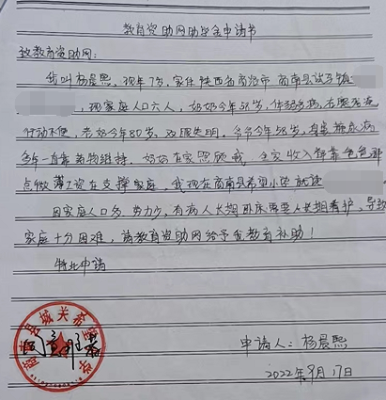 教育资助网助学金申请书
致教育资助网:
我叫杨晨熙,现年7岁,家住陕西省商洛市商南县试马镇
,现家庭人口六人,奶奶今年58岁,体弱多病,
行动不便,老奶今年80岁,双眼失明。爷爷今年58岁,有
多年一直靠药物维持。妈妈在家照顾我,主要收入都靠爸爸
点微薄工资在支撑家庭,我现在商南县希望小学就读
因家庭人口多,劳力少,有病人长期卧床需要人长期看护,导致
家庭十分困难,请教育资助网给予
补助!
特此申请
申请人:杨晨熙
2022年9月17日
城关希望